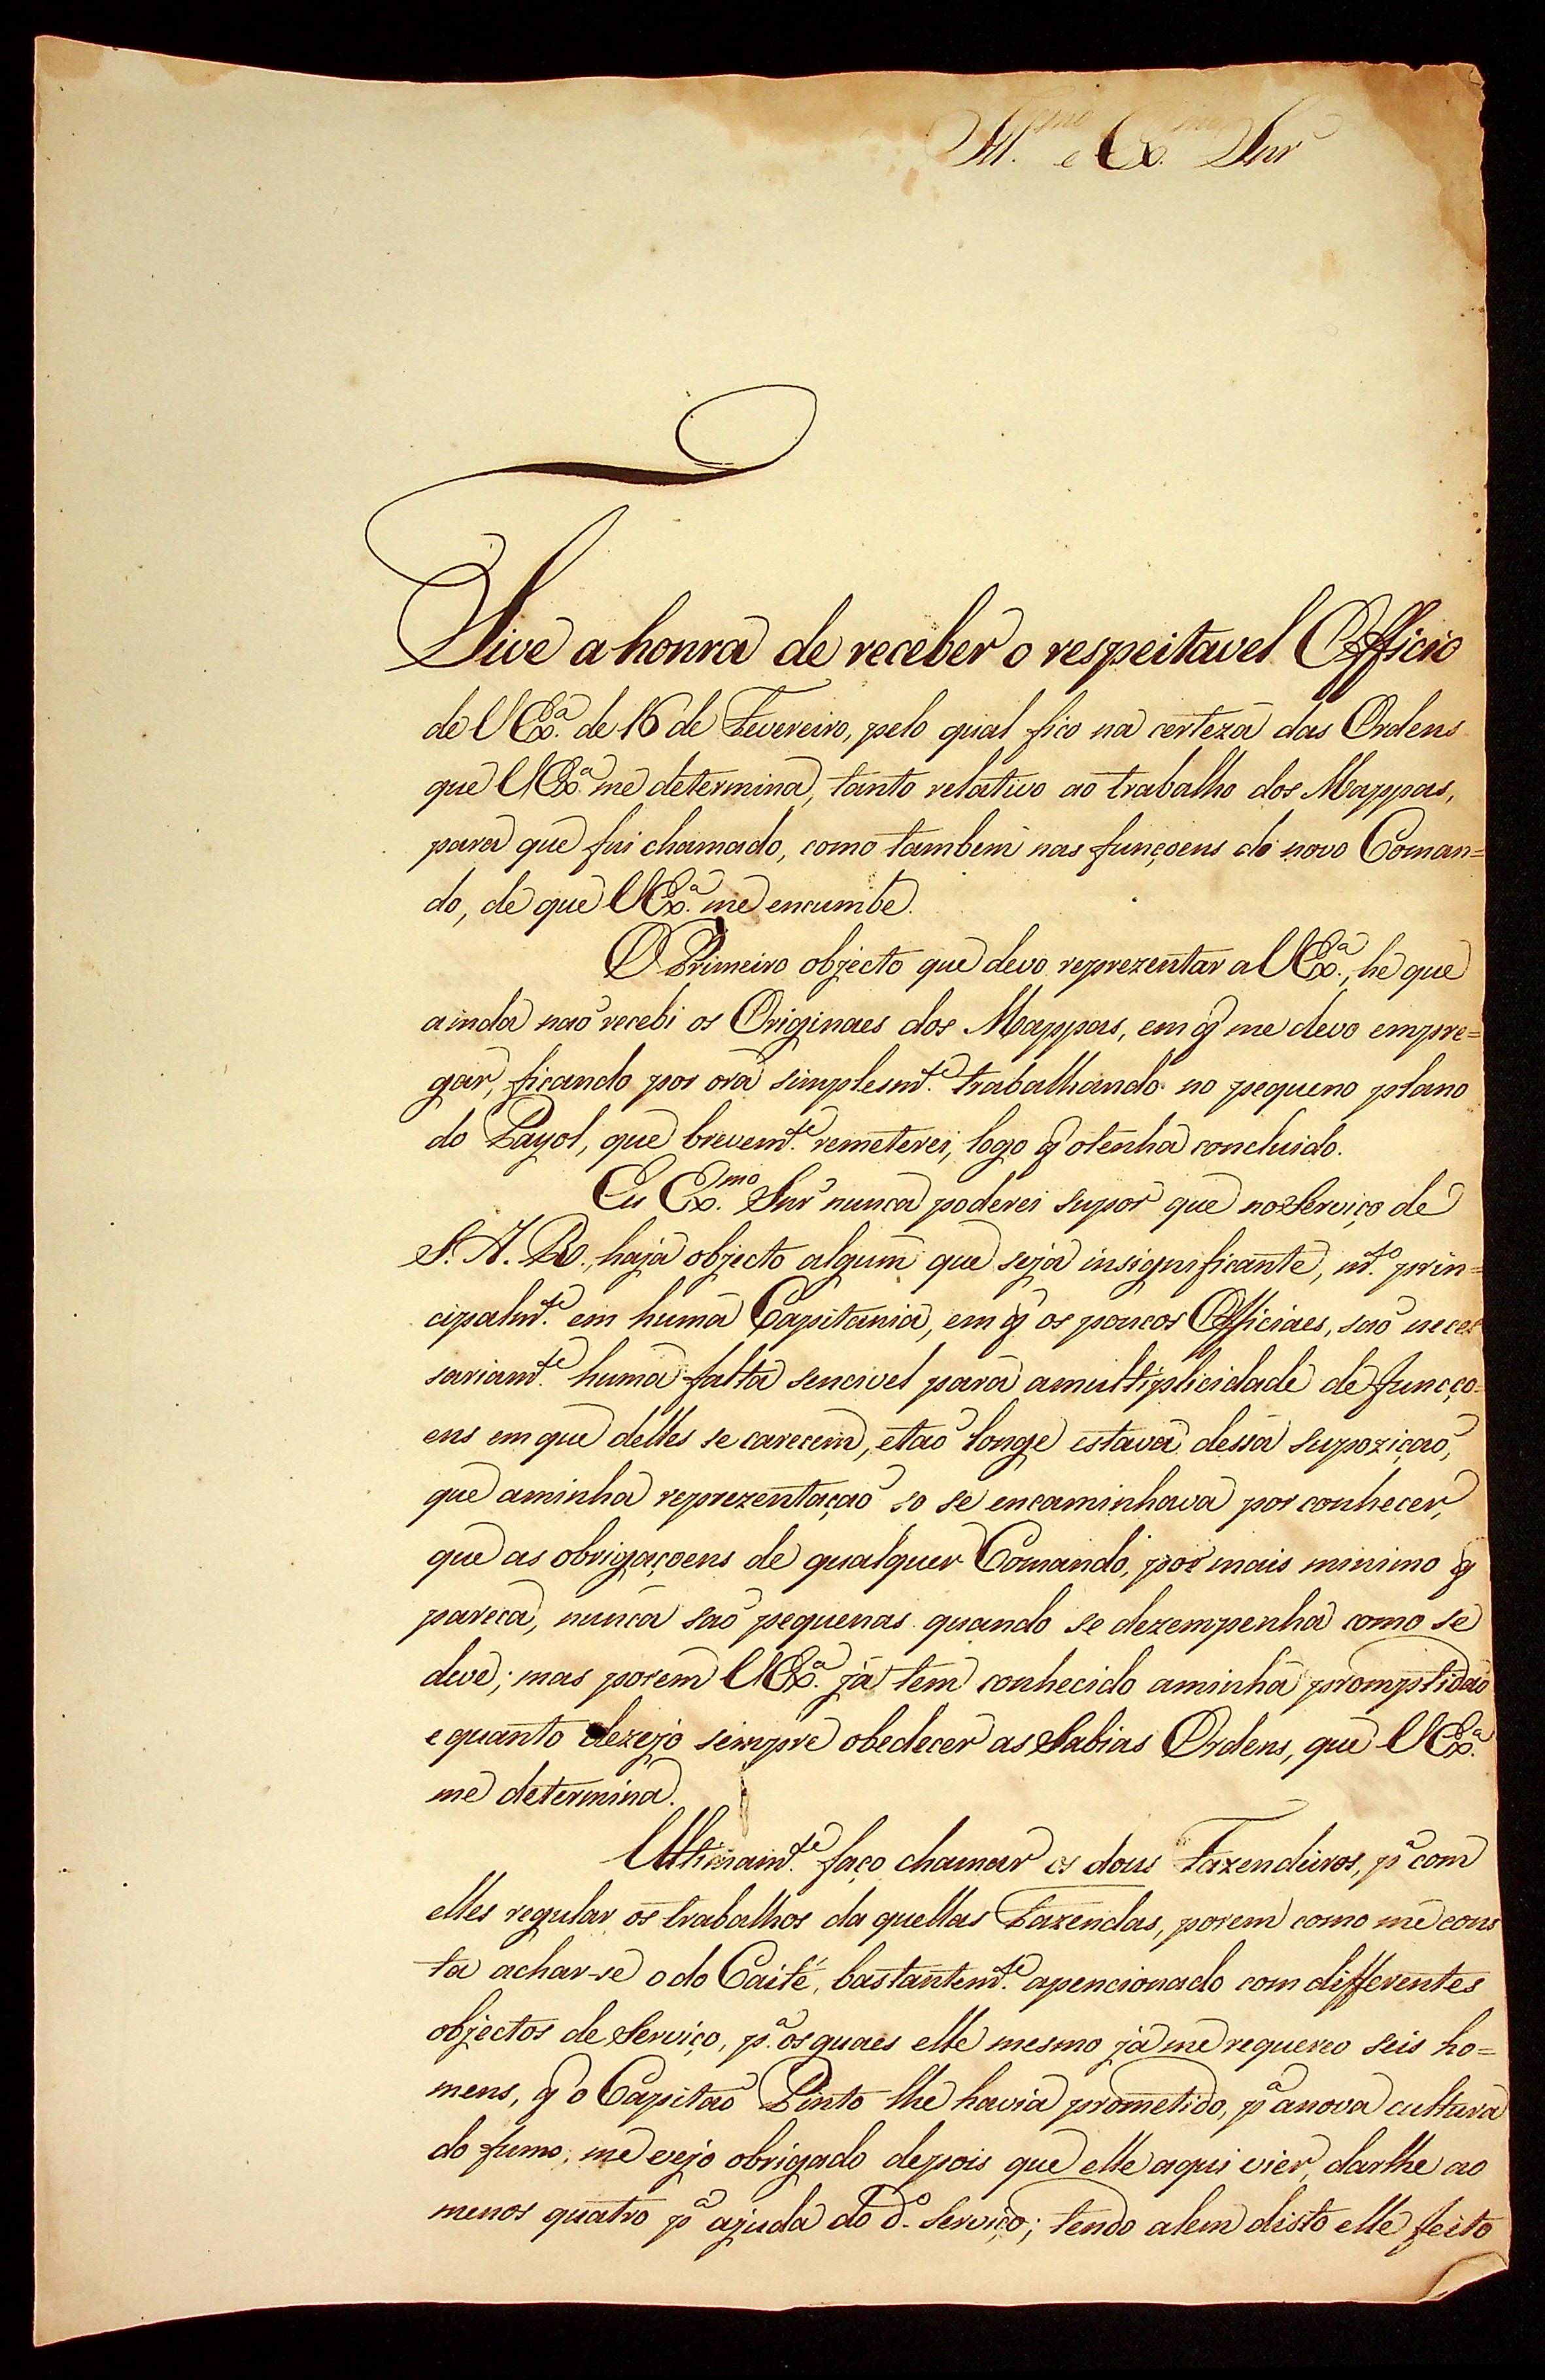 Ill.mo e Ex.mo Snr
Tive a honra de receber o respeitavel Officio
de VEx.a de 16 de Fevereiro, pelo qual fico na certeza das Ordens
que VEx.a me determina, tanto relativo ao trabalho dos Mappas,
para que fui chamado, como tambem nas funçoens do novo Coman=
do, de que VEx.a me encumbe.
O Primeiro objecto que devo reprezentar a VEx.a, he que
ainda naõ recebi os Originaes dos Mappas, em q̃ me devo empre=
gar, ficando por ora simplesm.te trabalhando no pequeno plano
do Payol, que brevem.te remeterei, logo q̃ o tenha concluido.
Eu Ex.mo Snr nunca poderei supor que no Serviço de
S. A. R., haja objecto algum que seja insignificante, m.to prin=
cipalm.te em huma Capitania, em q̃ os poucos Officiaes, saõ neces
sariam.te huma falta sencivel para amultiplicidade de funcço=
ens em que delles se carecem, etaõ longe estava dessa supoziçaõ,
que aminha reprezentaçaõ so se encaminhava por conhecer,
que as obrigaçoens de qualquer Comando, por mais minimo q̃
pareca, nunca saõ pequenas quando se dezempenha como se
deve; mas porem VEx.a já tem conhecido aminha promptidaõ
e quanto dezejo sempre obedecer as Sabias Ordens, que VEx.a
me determina.
Ultimam.te faço chamar os dous Fazendeiros, p.a com
elles regular os trabalhos da quellas Fazendas, porem como me cons
ta achar-se o do Caité, bastantem.te apencionado com differentes
objectos de Serviço, p.a os quaes elle mesmo já me requereo seis ho=
mens, q̃ o Capitaõ Pinto lhe havia prometido, p.a anova cultura
do fumo, me vejo obrigado depois que elle aqui vier, darlhe ao
menos quatro p.a ajuda do d.o Serviço; tendo alem disto elle feito